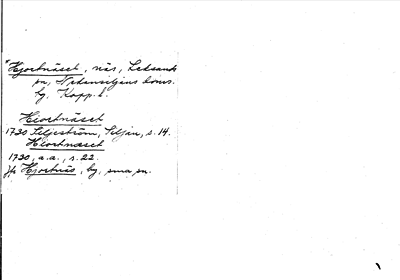 *Hjortnäset, näs, Leksands
sn, Nedansiljans doms.
hg. Kopp. l.
Hiortnäset
1730 Siljeström, Siljan, s. 14.
Hiortnæset
1730, a.a., s. 22.
Jfr Hjortnäs, by, sma sn.